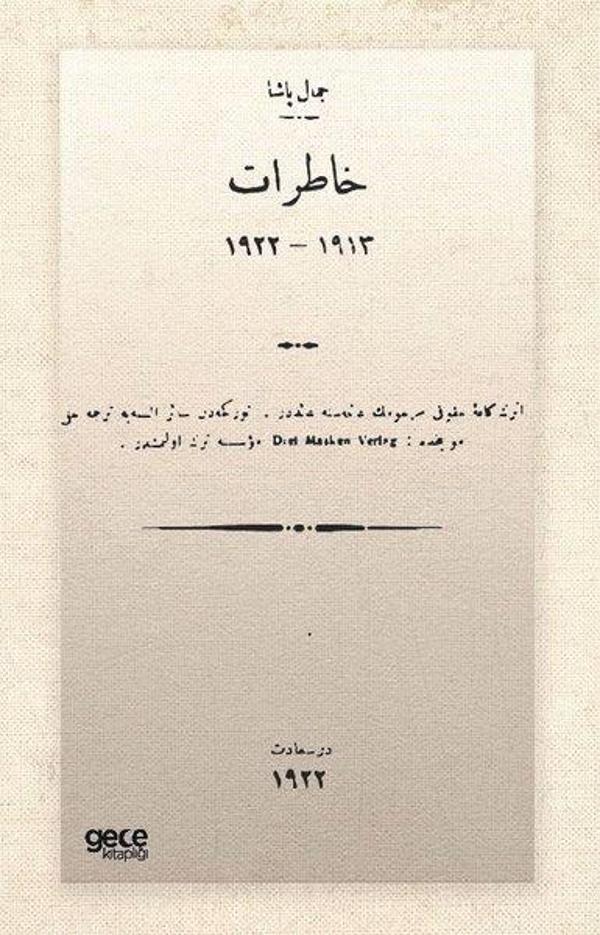 جمال پاشا
خاطرات
١٩١٣ – ١٩٢٢
اثرك كافهٔ حقوقى مرحومك عائله‌سنه عائددر . توركجه‌دن سائر السنه‌يه ترجمه حق
موجبنده : Drei Masken Verlag مؤسسه‌سنه اولمشدر .
درسعادت
١٩٢٢
gece
kitaplığı